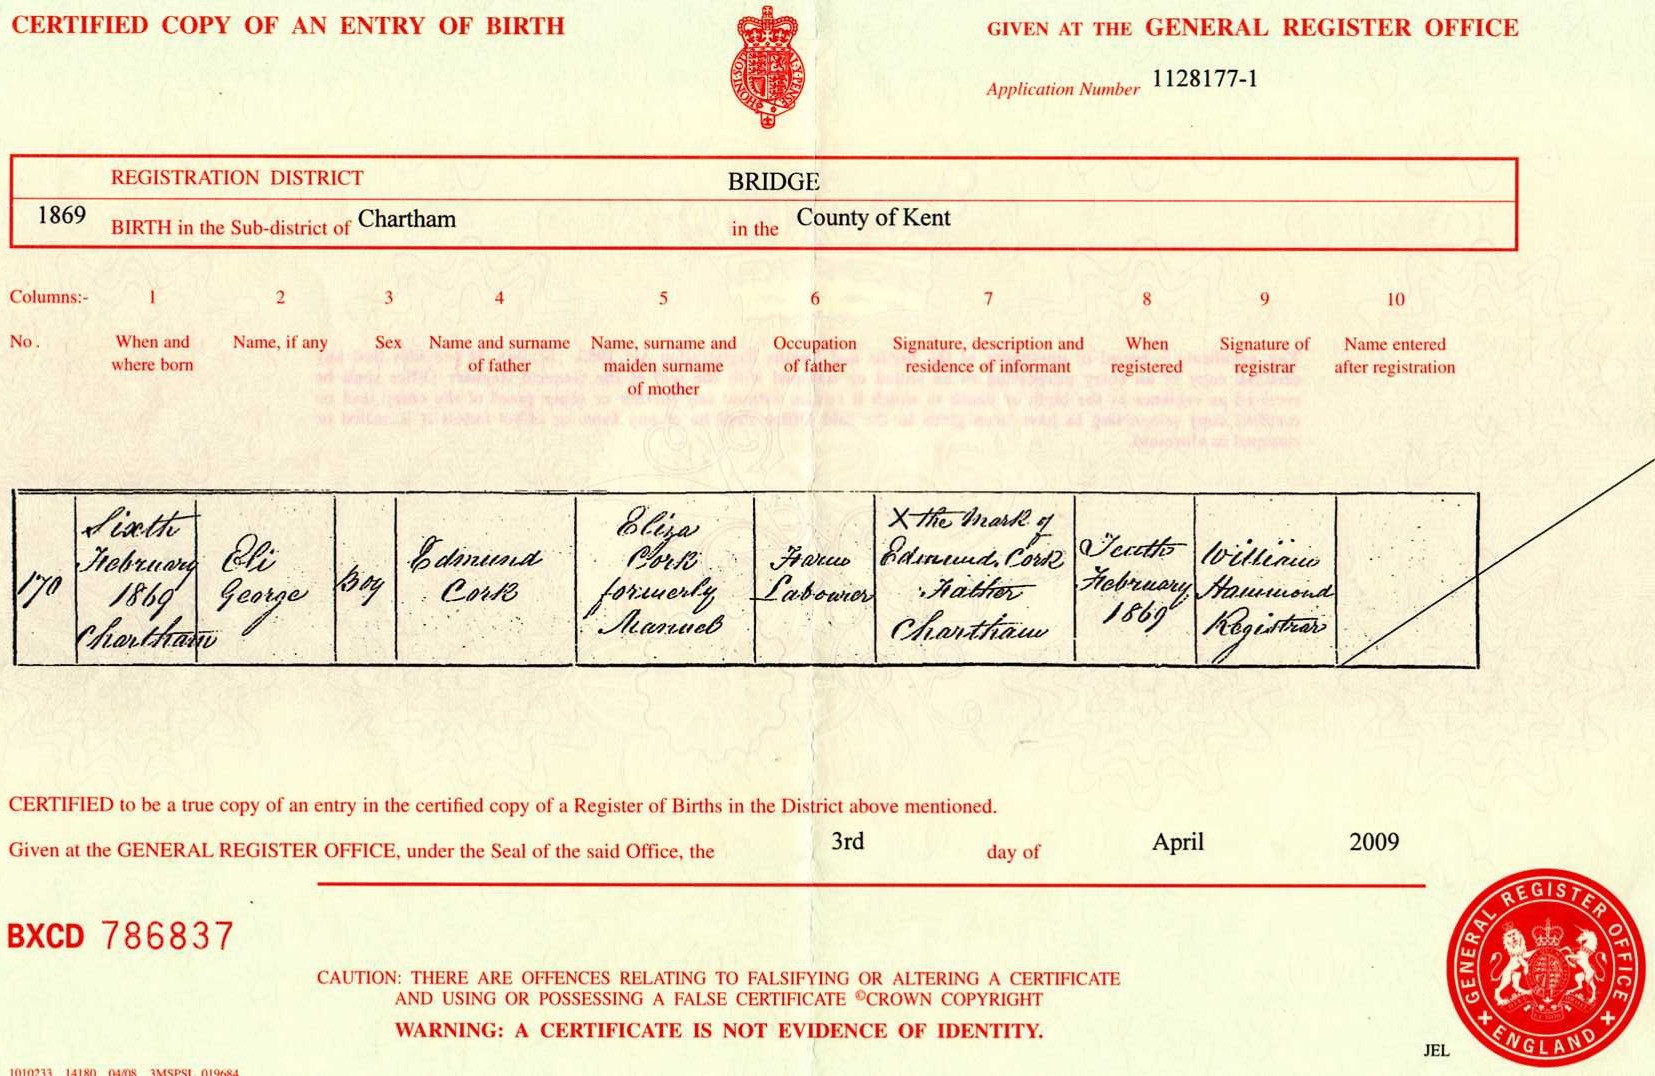 CERTIFIED COPY OF AN ENTRY OF BIRTH
GIVEN AT THE GENERAL REGISTER OFFICE
Application Number 1128177-1
REGISTRATION DISTRICT BRIDGE
1869 BIRTH in the Sub-district of Chartham in the County of Kent
Columns:- 1 2 3 4 5 6 7 8 9 10
No. When and where born
Name, if any
Sex
Name and surname of father
Name, surname and maiden surname of mother
Occupation of father
Signature, description and residence of informant
When registered
Signature of registrar
Name entered after registration
170
Sixth
February
1869
Chartham
Eli
George
Boy
Edmund
Cork
Eliza
Cork
formerly
Manuel
Farm
Labourer
X the Mark of
Edmund Cork
Father
Chartham
Tenth
February
1869
William
Hammond
Registrar
CERTIFIED to be a true copy of an entry in the certified copy of a Register of Births in the District above mentioned.
Given at the GENERAL REGISTER OFFICE, under the Seal of the said Office, the 3rd day of April 2009
BXCD 786837
CAUTION: THERE ARE OFFENCES RELATING TO FALSIFYING OR ALTERING A CERTIFICATE
AND USING OR POSSESSING A FALSE CERTIFICATE ©CROWN COPYRIGHT
WARNING: A CERTIFICATE IS NOT EVIDENCE OF IDENTITY.
GENERAL REGISTER OFFICE
ENGLAND
JEL
1010233 14180 04/08 3MSPSL 019684